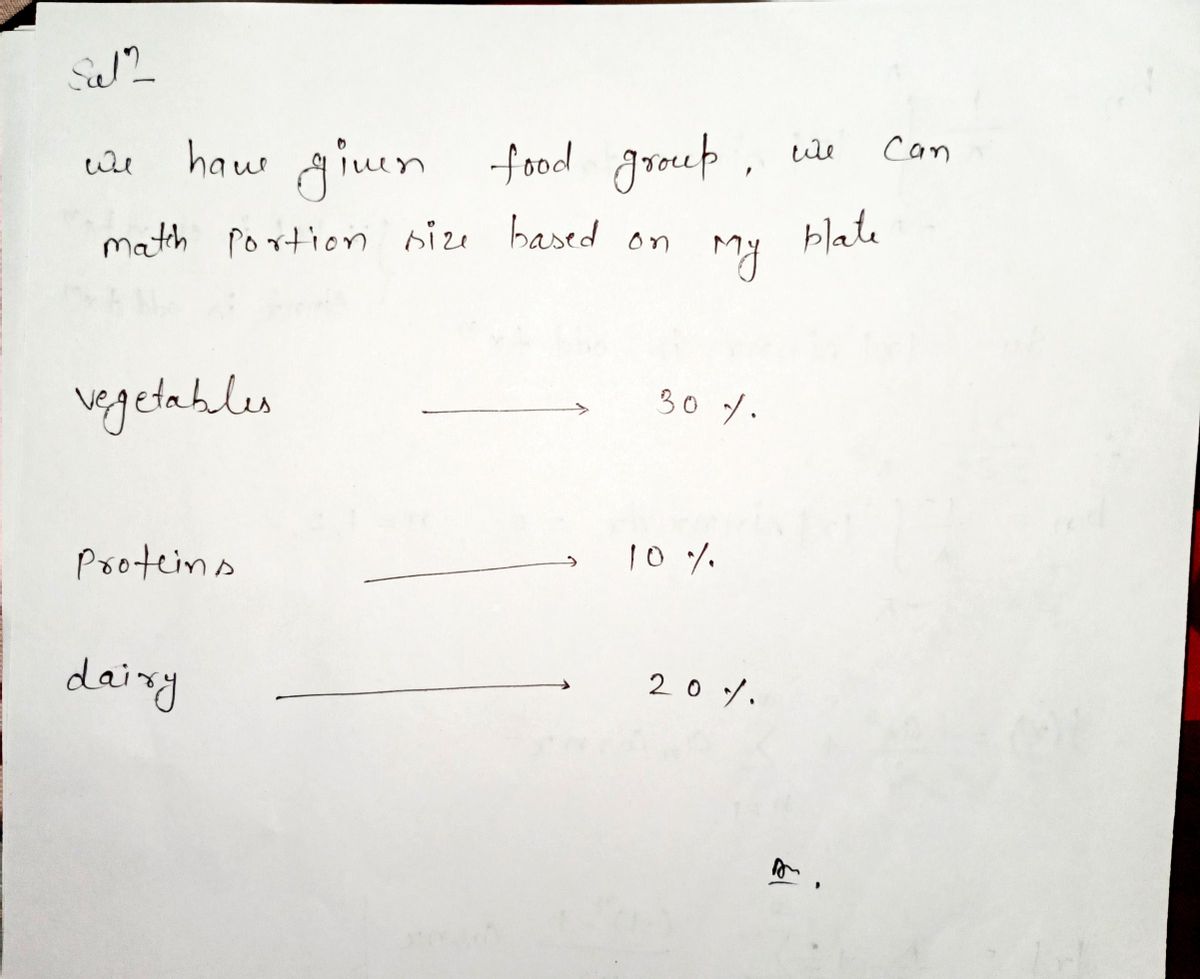 Sol^n
we have given food group, we can
math portion size based on My plate
vegetables → 30 %.
Proteins → 10 %.
dairy → 20 %.
An.